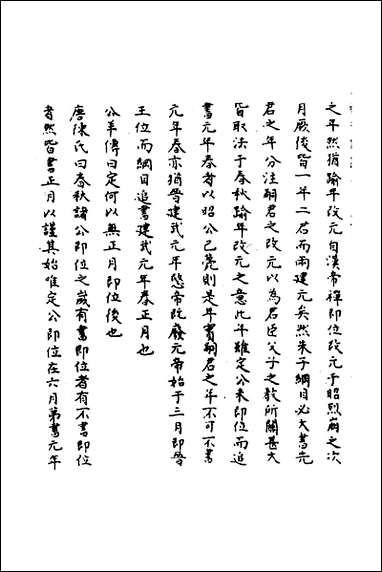 之年然猶踰年改元自漢帝禪即位改元于昭烈崩之次
月厥後皆一年二君而兩建元矣然朱子綱目必大書先
君之年分注嗣君之改元以為君臣父子之教所關甚大
皆取法于春秋踰年改元之意此年雖定公未即位而追
書元年春者以昭公已薨則是年實嗣君之年不可不書
元年春亦猶晉建武元年愍帝既廢元帝始于三月即晉
王位而綱目追書建武元年春正月也
公羊傳曰定何以無正月即位後也
唐陳氏曰春秋諸公即位之歲有書即位者有不書即位
者然皆書正月以謹其始唯定公即位在六月第書元年